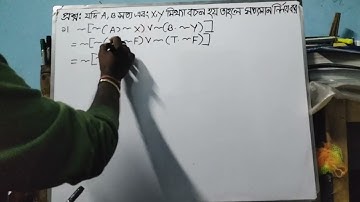 প্রশ্ন: যদি A, B সত্য এবং X, Y মিথ্যা বচন হয় তাহলে সত্যমান নির্ণয় কর
২। ~ [~ (A ⊃ ~ X) V ~ (B . ~ Y)]
= ~ [~ ~ F) V ~ (T . ~ F)]
= ~ [